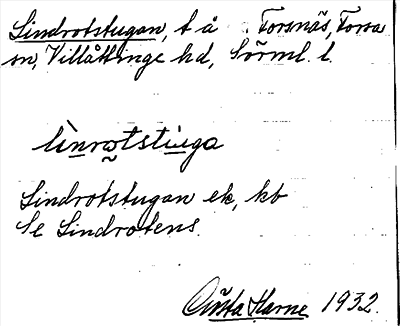 Lindrotstugan, t å Forsnäs, Forsa
sn, Villåttinge hd, Sörml. l.
lìnrωtstùga
Lindrotstugan ek, kb
Se Lindrotens.
Gösta Harne 1932.